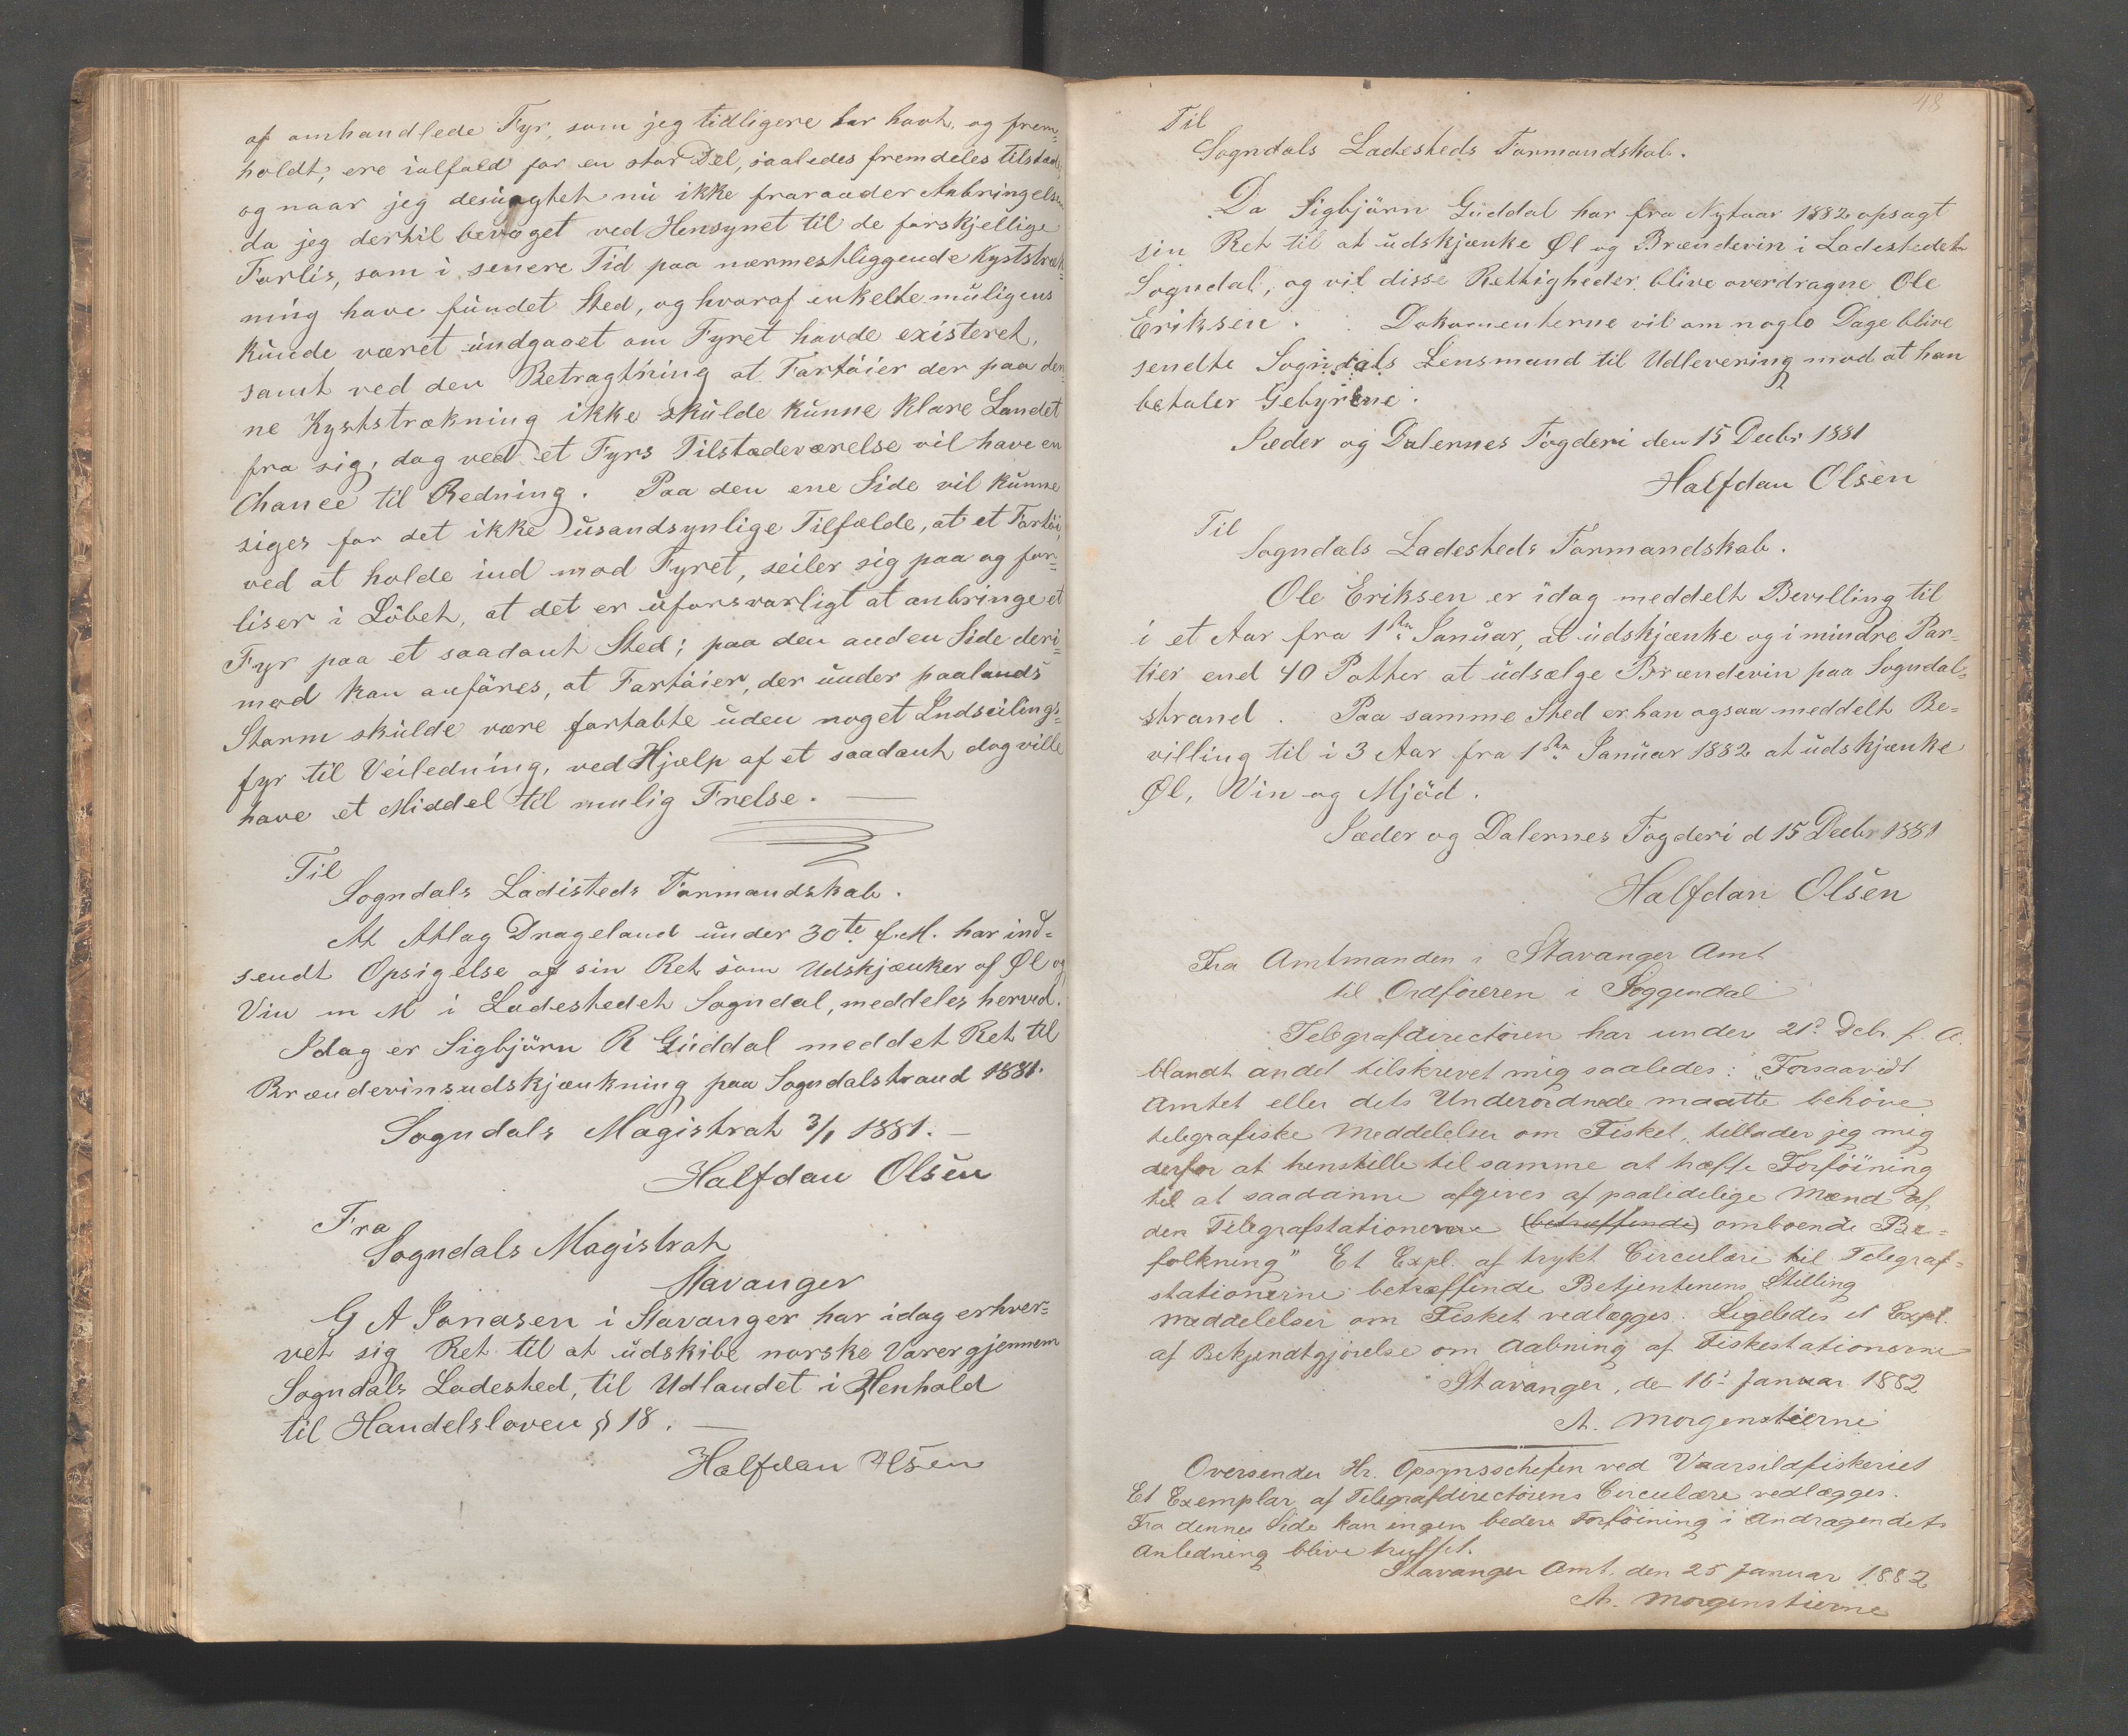 af omhandlede Fyr, som jeg tidligere har havt, og frem-
holdt, ere ialfald for en stor Del, saaledes fremdeles tilstede,
og naar jeg desuagtet nu ikke fraraader Anbringelsen
da jeg dertil bevæget ved Hensynet til de forskjellige
Forlis, som i senere Tid paa nærmestliggende Kyststræk-
ning have fundet Sted, og hvoraf enkelte muligens
kunde været undgaaet om Fyret havde existeret,
samt ved den Betragtning at Fartöier der paa den-
ne Kyststrækning ikke skulde kunne klare Landet
fra sig, dog ved et Fyrs Tilstedeværelse vil have en
Chance til Redning. Paa den ene Side vil kunne
siges for det ikke usandsynlige Tilfælde, at et Fartöi,
ved at holde ind mod Fyret, seiler sig paa og for-
liser i Löbet, at det er uforsvarligt at anbringe et
Fyr paa et saadant Sted; paa den anden Side deri-
mod kan anföres, at Fartöier, der under paalands
Storm skulde være fortabte uden noget Indseilings-
fyr til Veiledning, ved Hjælp af et saadant dog ville
have et Middel til mulig Frelse. —
Til
Sogndals Ladisteds Formandskab.
At Atlag Drageland under 30te f.M. har ind-
sendt Opsigelse af sin Ret som Udskjænker af Øl og
Vin m M i Ladestedet Sogndal, meddeles herved.
Idag er Sigbjörn R Guddal meddet Ret til
Brændevinsudskjænkning paa Sogndalstrand 1881.
Sogndals Magistrat 3/1 1881. —
Halfdan Olsen
Fra
Sogndals Magistrat
Stavanger
G A Jonasen i Stavanger har idag erhver-
vet sig Ret til at udskibe norske Varer gjennem
Sogndals Ladested, til Udlandet i Henhold
til Handelsloven § 18. —
Halfdan Olsen
48
Til
Sogndals Ladesteds Formandskab.
Da Sigbjörn Guddal har fra Nytaar 1882 opsagt
sin Ret til at udskjænke Øl og Brændevin i Ladestedet
Sogndal, og vil disse Rettigheder blive overdragne Ole
Eriksen. Dokumenterne vil om nogle Dage blive
sendte Sogndals Lensmand til Udlevering mod at han
betaler Gebyrene.
Jæder og Dalernes Fogderi den 15 Decbr 1881
Halfdan Olsen
Til
Sogndals Ladesteds Formandskab.
Ole Eriksen er idag meddelt Bevilling til
i et Aar fra 1ste Januar, at udskjænke og i mindre Par-
tier end 40 Potter at udsælge Brændevin paa Sogndal-
strand. Paa samme Sted er han ogsaa meddelt Be-
villing til i 3 Aar fra 1ste Januar 1882 at udskjænke
Øl, Vin og Mjöd.
Jæder og Dalernes Fogderi d 15 Decbr 1881
Halfdan Olsen
Fra Amtmanden i Stavanger Amt
til Ordföreren i Soggendal
Telegrafdirectören har under 21? Debr f. A.
blandt andet tilskrevet mig saaledes: "Forsaavidt
Amtet eller dets Underordnede maatte behöve
telegrafiske Meddelelser om Fisket, tillader jeg mig
derfor at henstille til samme at træffe Forföining
til at saadanne afgives af paalidelige Mænd af
den Telegrafstationerne (betræffende) omboende Be-
folkning" Et Expl. af trykt Circulære til Telegraf-
stationerne betræffende Betjentenens Stilling
Meddelelser om Fisket vedlægges. Ligeledes et Expl.
af Bekjendtgjörelse om Aabning af Fiskestationerne
Stavanger, den 16? Januar 1882
A. Morgenstierne
Oversendes Hr. Opsynschefen ved Vaarsildfiskeriet
Et Exemplar af Telegrafdirectörens Circulære vedlægges.
Fra dennes Side kan ingen bedere Forföining i Andragendets
Anledning blive truffet.
Stavanger Amt. den 25 Januar 1882
A. Morgenstierne